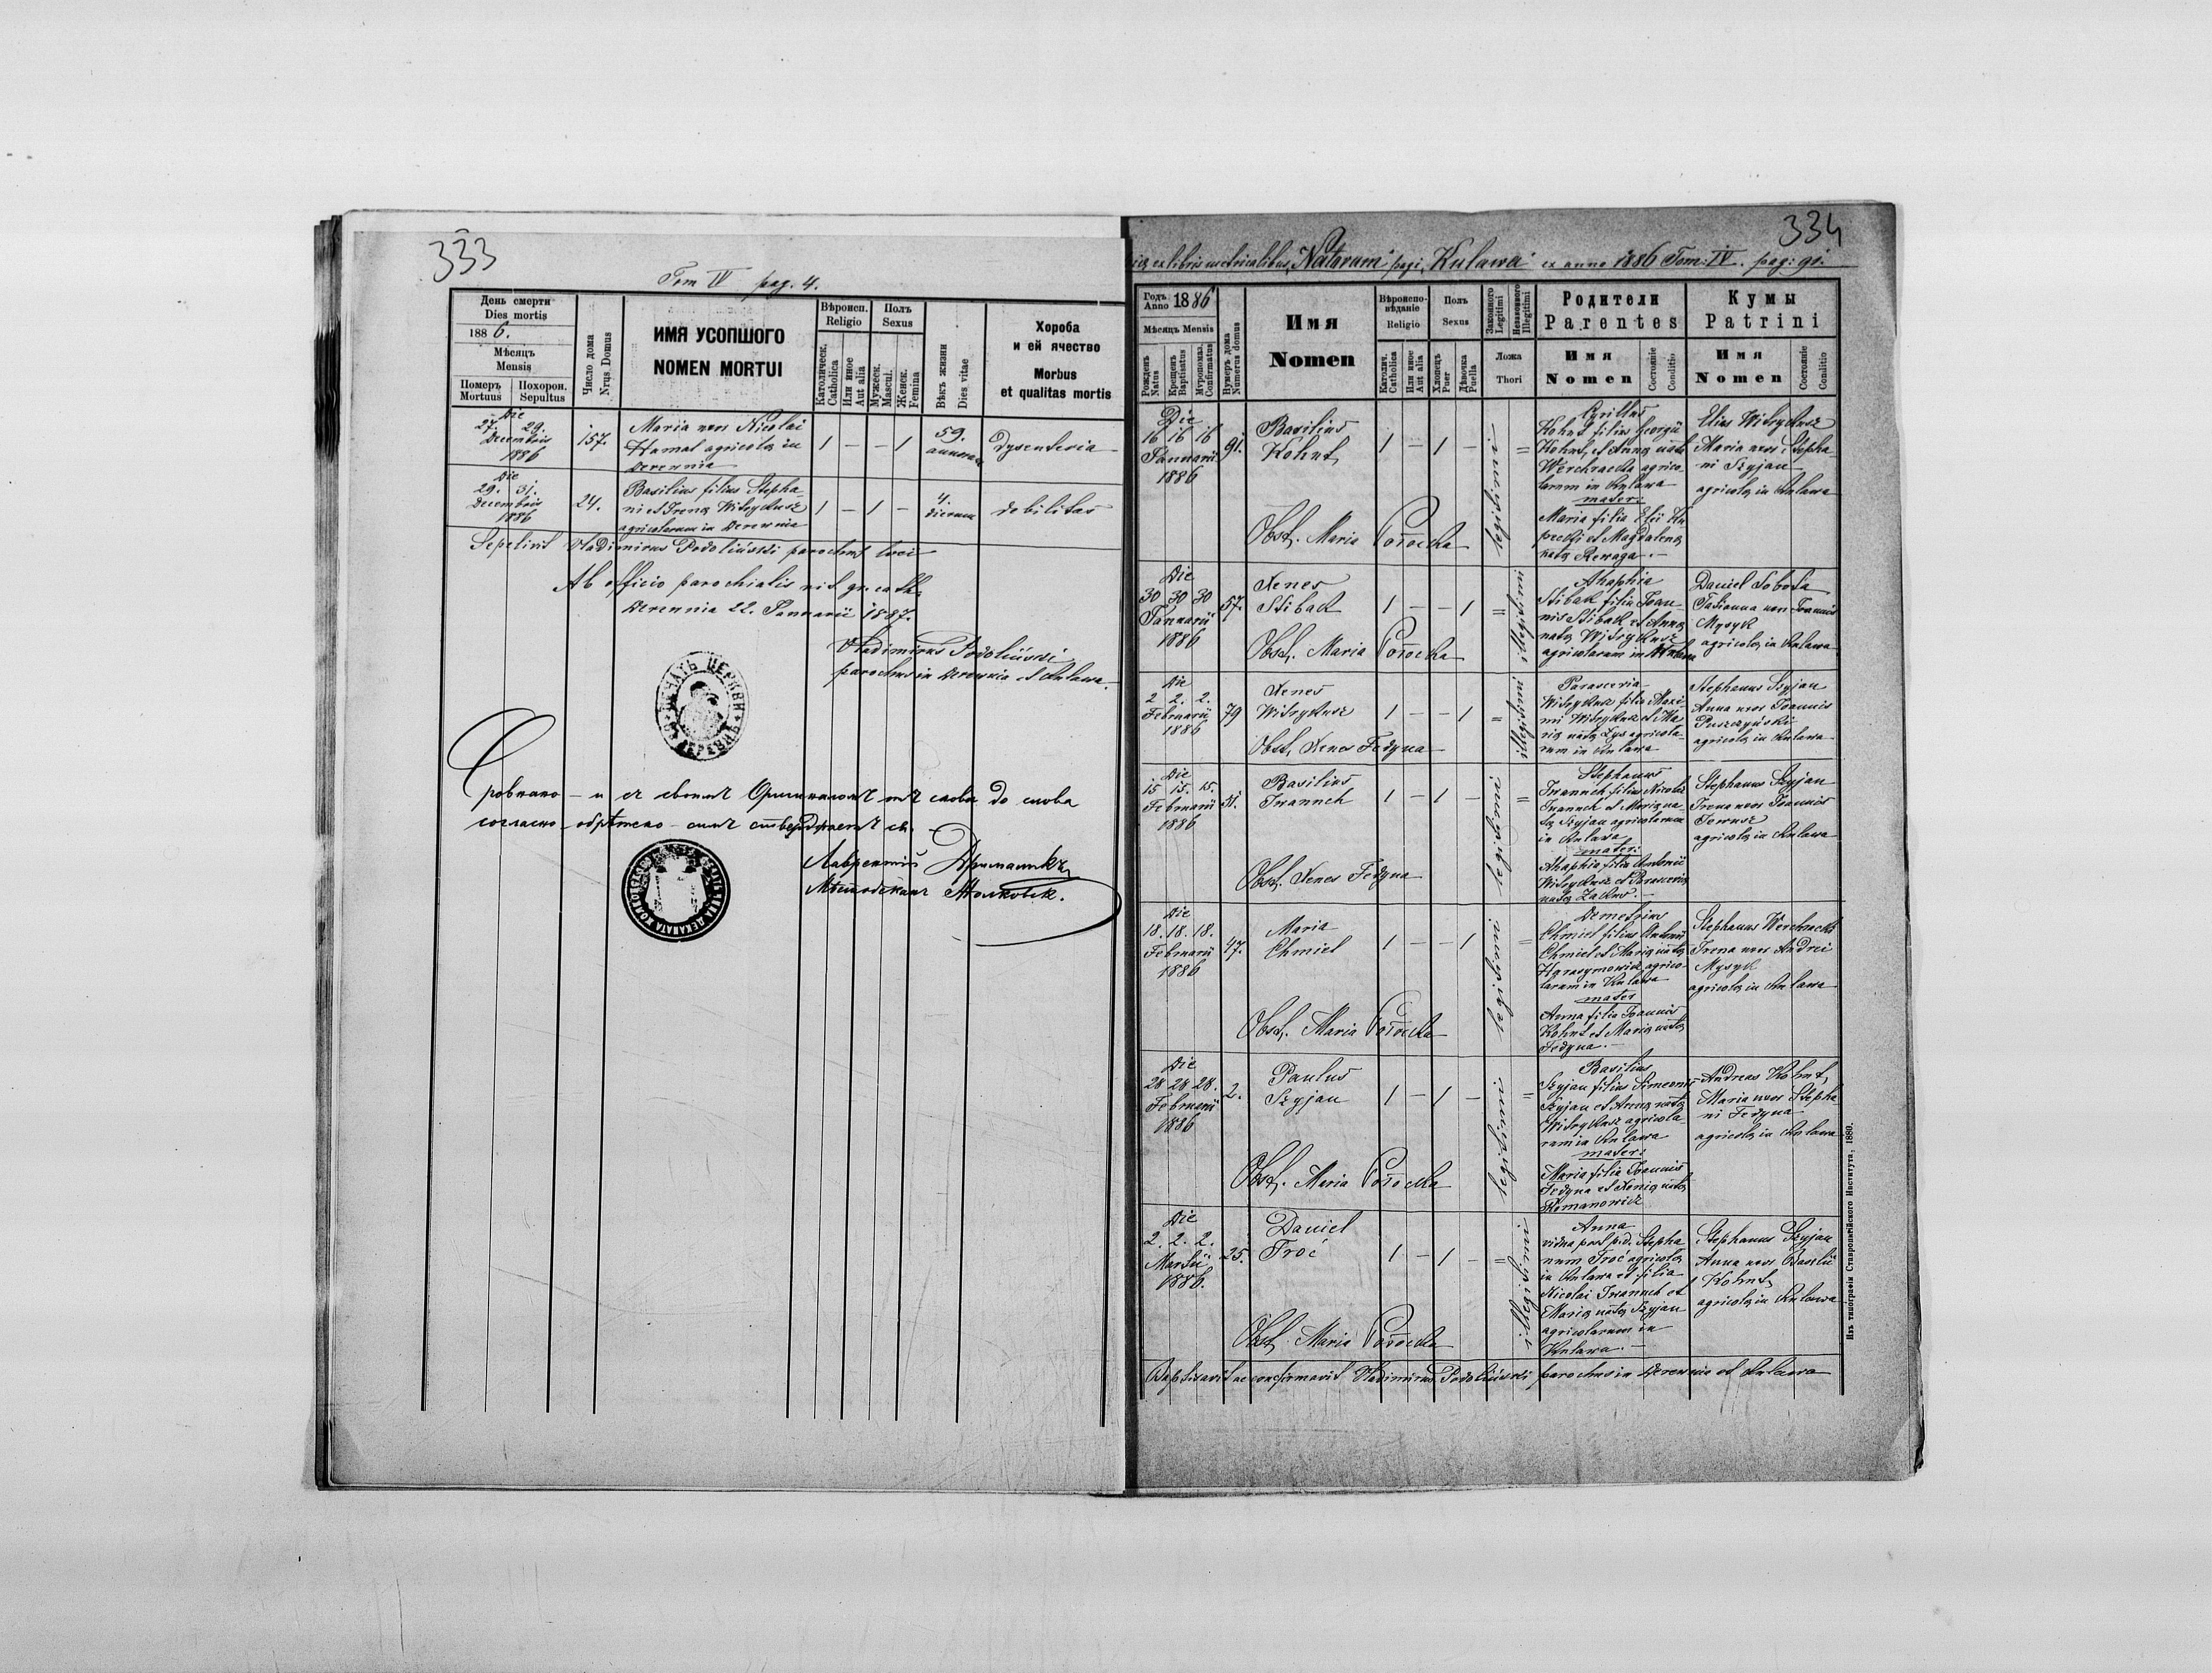 333
Tom IV pag. 4.
День смерти
Dies mortis
1886.
Мѣсяць
Mensis
Померъ
Mortuus
Похорон.
Sepultus
Число дома
Nrus Domus
ИМЯ УСОПШОГО
NOMEN MORTUI
Вѣроисп.
Religio
Католическ.
Catholica
Или иное
Aut alia
Полъ
Sexus
Мужеск.
Mascul.
Женск.
Femina
Вѣкъ жизни
Dies vitae
Хороба
и ей ячество
Morbus
et qualitas mortis
Die
27. 29.
Decembris
1886
157.
Maria uxor Nicolai
Hamal agricolæ in
Derewnia
1 — — 1
59.
annorum
Dysenteria
Die
29. 31.
Decembris
1886
24.
Basilius filius Stepha-
ni et Irenæ Witrykusz
agricolarum in Derewnia
1 — 1 —
4.
dierum
debilitas
Sepelivit Vladimirus Podoliński parochus loci
Ab officio parochialis rit. gr. cath.
Derewnia 22. Januarii 1887.
Vladimirus Podoliński
parochus in Derewnia et Kulawa.
Ровнано — и съ своимъ Оригиналомъ отъ слова до слова
согласно — обрѣтено — симъ стверджаетъ ся. —
Лаврентій
Мѣстодеканъ Жолковск.
334
ex libris metricalibus „Natorum" pagi „Kulawa" ex anno 1886 Tom: IV. pag: 91.
Годъ
Anno 1886
Мѣсяць Mensis
Рожденъ
Natus
Крещенъ
Baptisatus
Мvропомаз.
Confirmatus
Нумеръ дома
Numerus domus
Имя
Nomen
Вѣроиспо-
вѣданіе
Religio
Католич.
Catholica
Или иное
Aut alia
Полъ
Sexus
Хлопецъ
Puer
Дѣвочка
Puella
Законного
Legitimi
Незаконного
Illegitimi
Ложа
Thori
Родители
Parentes
Имя
Nomen
Состояніе
Conditio
Кумы
Patrini
Имя
Nomen
Состояніе
Conditio
Die
16 16 16
Januarii
1886
91.
Basilius
Kohut
1 — 1 —
legitimi
Cyrillus
Kohut filius Georgii
Kohut et Annæ natæ
Werchracka agrico-
larum in Kulawa
mater:
Maria filia Elii Ku
precki et Magdalenæ
natæ Rewaga. —
Elias Witrykusz
Maria uxor Stepha-
ni Szyjan
agricolæ in Kulawa
Obst. Maria Porocka
Die
30 30 30
Januarii
1886
57.
Xenes
Stibak
1 — — 1
illegitimi
Ahaphia
Stibak filia Joan-
nis Stibak et Annæ
natæ Witrykusz
agricolarum in Kulawa
Daniel Soboda
Tatianna uxor Joannis
Mysyk
agricolæ in Kulawa
Obst. Maria Porocka
Die
2 2. 2.
Februarii
1886
79
Xenes
Witrykusz
1 — — 1
illegitimi
Parascevia
Witrykusz filia Maxi-
mi Witrykusz et Ma
riæ natæ Lys agricola-
rum in Kulawa
Stephanus Szyjan
Anna uxor Joannis
Puszczyński
agricolæ in Kulawa
Obst. Xenes Fedyna
Die
15 15. 15.
Februarii
1886
31.
Basilius
Iwanneh
1 — 1 —
legitimi
Stephanus
Iwanneh filius Nicolai
Iwanneh et Mariæ na-
tæ Szyjan agricolarum
in Kulawa
mater:
Ahaphia filia Antonii
Witrykusz et Parasceviæ
natæ
Stephanus Szyjan
Irena uxor Joannis
agricolæ in Kulawa
Obst. Xenes Fedyna
Die
18. 18. 18.
Februarii
1886
47.
Maria
Chmiel
1 — — 1
legitimi
Demetrius
Chmiel filius Antonii
Chmiel et Mariæ natæ
Harasymowicz agrico-
larum in Kulawa
mater
Anna filia Joannis
Kohut et Mariæ natæ
Fedyna. —
Stephanus Werchracki
Irena uxor Andrei
Mysyk
agricolæ in Kulawa
Obst. Maria Porocka
Die
28 28 28.
Februarii
1886
2.
Paulus
Szyjan
1 — 1 —
legitimi
Basilius
Szyjan filius Simeonis
Szyjan et Annæ natæ
Witrykusz agricola-
rum in Kulawa
mater:
Maria filia Joannis
Fedyna et Xeniæ natæ
Romanowicz
Andreas Kohut,
Maria uxor Stepha-
ni Fedyna
agricolæ in Kulawa
Obst. Maria Porocka
Die
2. 2. 2.
Martii
1886.
25.
Daniel
Troć
1 — 1 —
illegitimi
Anna
vidua post p.d. Stepha
num Troć agricolæ
in Kulawa et filia
Nicolai Iwanneh et
Mariæ natæ Szyjan
agricolarum in
Kulawa. —
Stephanus Szyjan
Anna uxor Basilii
Kohut
agricolæ in Kulawa
Obst. Maria Porocka
Baptisavit ac confirmavit Vladimirus Podoliński parochus in Derewnia et Kulawa
Изъ типографіи Ставропигійского Института, 1880.